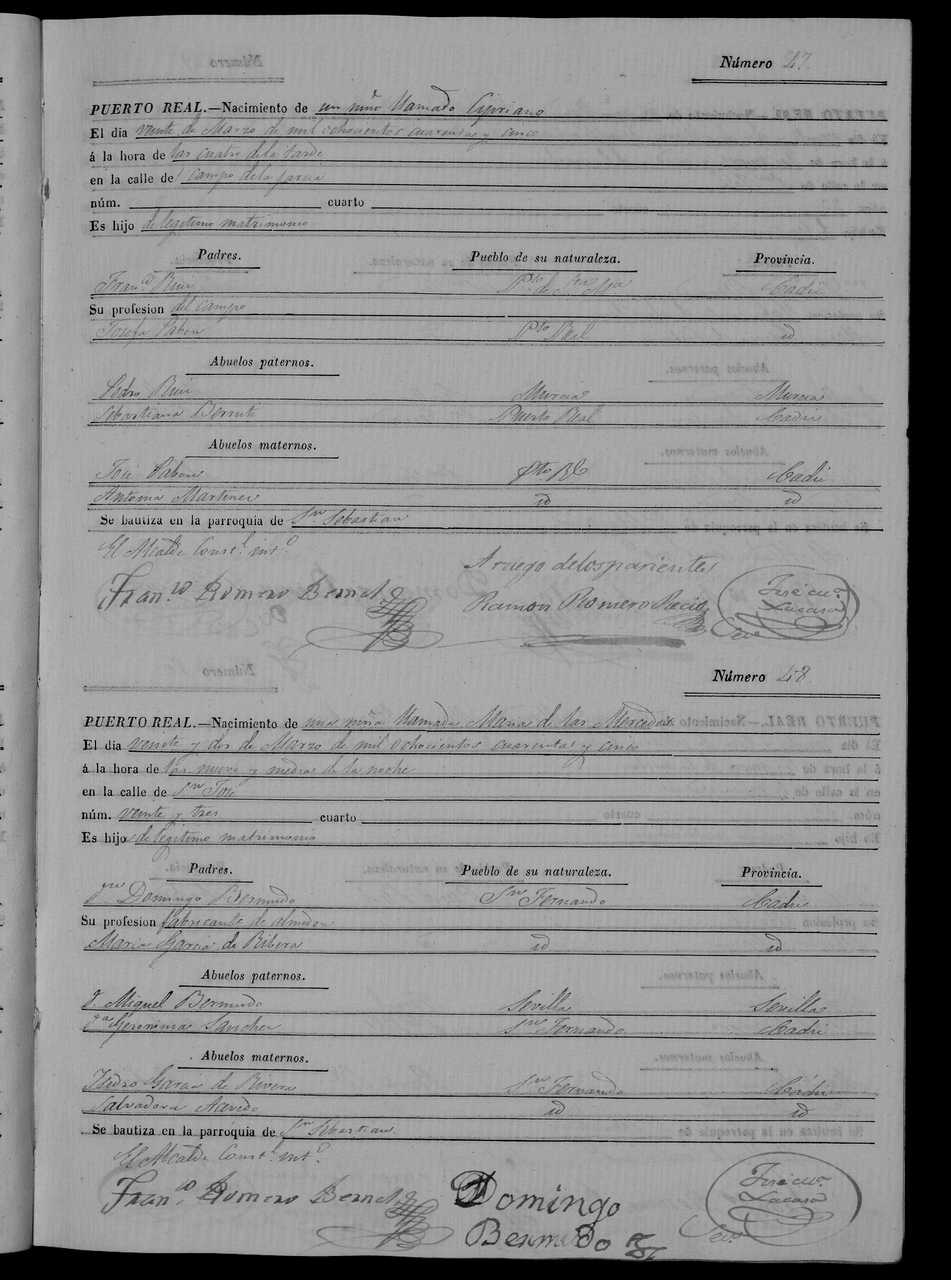 Número 47.
PUERTO REAL.—Nacimiento de un niño llamado Cipriano
El dia veinte de Marzo de mil ochocientos cuarenta y cinco
á la hora de las cuatro de la tarde
en la calle de Campo de la
núm. cuarto
Es hijo de legitimo matrimonio
Padres. Pueblo de su naturaleza. Provincia.
Fran.co Ruiz Pto. de Sta. Ma. Cadiz
Su profesion del campo
Josefa Pabon Pto Real id
Abuelos paternos.
Pedro Ruiz Murcia Murcia
Sebastiana Puerto Real Cadiz
Abuelos maternos.
José Pabon Pto Rl Cadiz
Antonia Martinez id id
Se bautiza en la parroquia de Sn Sebastian
El Alcalde Const.l int.o
Fran.co Romero Bernal A ruego de los parientes
Ramon Romero Recio José Ma.
Lacasa
Srio
Número 48.
PUERTO REAL.—Nacimiento de una niña llamada Maria de las Mercedes
El dia veinte y dos de Marzo de mil ochocientos cuarenta y cinco
á la hora de las nueve y media de la noche
en la calle de Sn José
núm. veinte y tres cuarto
Es hijo de legitimo matrimonio
Padres. Pueblo de su naturaleza. Provincia.
Domingo Bermudo Sn Fernando Cadiz
Su profesion fabricante de almidon
Maria Garcia de Ribera id id
Abuelos paternos.
D. Miguel Bermudo Sevilla Sevilla
Da Geronima Sanchez Sn Fernando Cadiz
Abuelos maternos.
Pedro Garcia de Rivera Sn Fernando Cadiz
Salvadora Acevedo id id
Se bautiza en la parroquia de Sn Sebastian
El Alcalde Const.l int.o
Fran.co Romero Bernal Domingo
Bermudo José Ma.
Lacasa
Srio